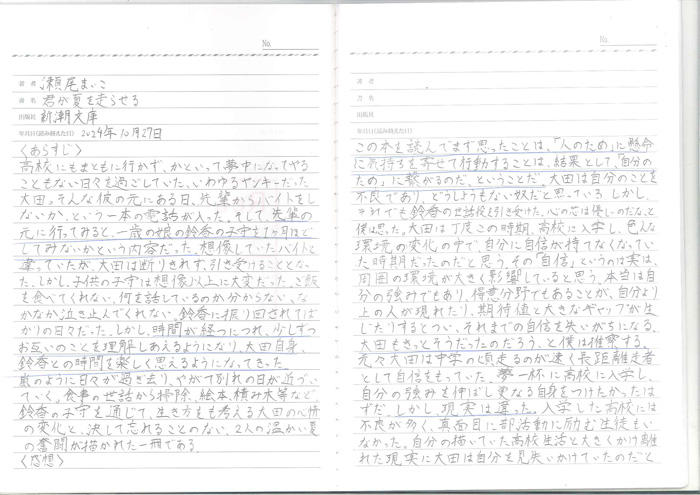 No.
著者 瀬尾まいこ
書名 君が夏を走らせる
出版社 新潮文庫
年月日(読み終えた日) 2024年10月27日
〈あらすじ〉
高校にもまともに行かず、かといって夢中になってやる
こともない日々を過ごしていた、いわゆるヤンキーだった
大田。そんな彼の元にある日、先輩からバイトをし
ないか、という一本の電話が入った。そして、先輩の
元に行ってみると、一歳の娘の鈴香の子守を1ヶ月ほど
してみないかという内容だった。想像していたバイトと
違っていたが、大田は断りきれず、引き受けることとな
った。しかし、子供の子守は想像以上に大変だった。ご飯
を食べてくれない、何を話しているのか分からない、な
かなか泣き止んでくれない。鈴香に振り回されてば
かりの日々だった。しかし、時間が経つにつれ、少しずつ
お互いのことを理解しあえるようになり、大田自身、
鈴香との時間を楽しく思えるようになってきた。
風のように日々が過ぎ去り、やがて別れの日が近づい
ていく。食事の世話から掃除、絵本、積み木等など、
鈴香の子守を通じて、生き方をも考える大田の心情
の変化と、決して忘れることのない、2人の温かい夏
の奮闘が描かれた一冊である。
〈感想〉
No.
著者
書名
出版社
年月日(読み終えた日)
この本を読んでまず思ったことは、「人のため」に懸命
に気持ちを寄せて行動することは、結果として、「自分の
ため」に繋がるのだ、ということだ。大田は自分のことを
不良であり、どうしようもない奴だと思っている。しかし、
それでも鈴香の世話役を引き受けた、心の芯は優しいのだな、と
僕は思った。大田は丁度この時期、高校に入学し、色んな
環境の変化の中で、自分に自信が持てなくなってい
た時期だったのだと思う。その「自信」というのは実は、
周囲の環境が大きく影響していると思う。本当は自
分の強みでもあり、得意分野でもあることが、自分より
上の人が現れたり、期待値と大きなギャップが生
じたりするとつい、それまでの自信を失いがちになる。
大田もきっとそうだったのだろう、と僕は推察する。
元々大田は中学の頃走るのが速く長距離離走者
として自信をもっていた。夢一杯に高校に入学し、
自分の強みを伸ばし更なる自身をつけたかったは
ずだ。しかし、現実は違った。入学した高校には
不良が多く、真面目に部活動に励む生徒もい
なかった。自分の描いていた高校生活と大きくかけ離れ
れた現実に大田は自分を見失いかけていたのだと